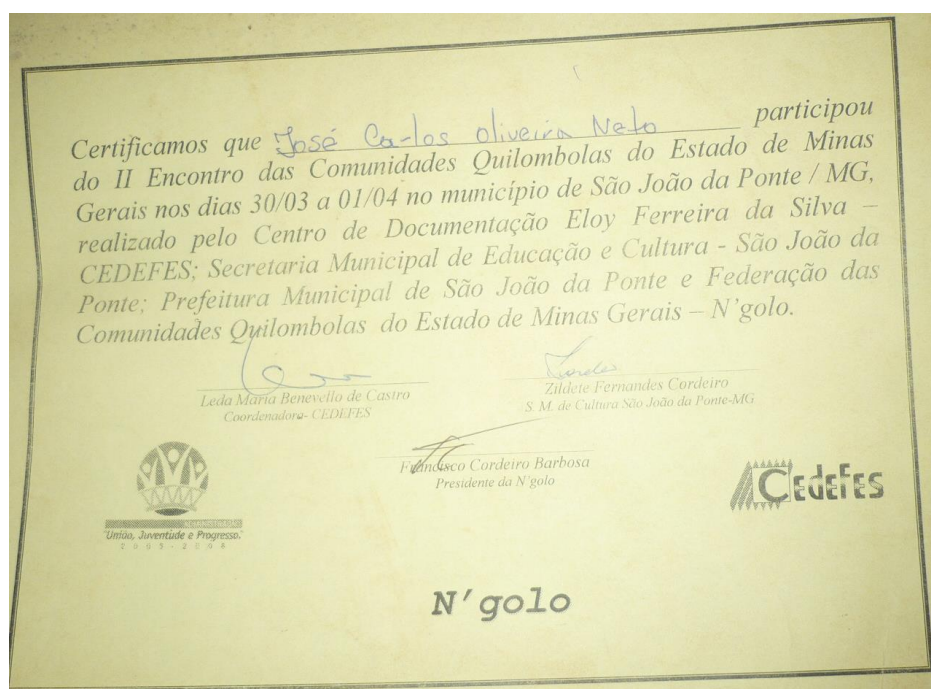 Certificamos que José Carlos Oliveira Neto participou
do II Encontro das Comunidades Quilombolas do Estado de Minas
Gerais nos dias 30/03 a 01/04 no município de São João da Ponte / MG,
realizado pelo Centro de Documentação Eloy Ferreira da Silva –
CEDEFES; Secretaria Municipal de Educação e Cultura - São João da
Ponte; Prefeitura Municipal de São João da Ponte e Federação das
Comunidades Quilombolas do Estado de Minas Gerais – N'golo.
Leda Maria Benevello de Castro
Coordenadora- CEDEFES
Zildete Fernandes Cordeiro
S. M. de Cultura São João da Ponte-MG
Francisco Cordeiro Barbosa
Presidente da N'golo
ADMINISTRAÇÃO
"União, Juventude e Progresso."
2005-2008
Cedefes
N'golo